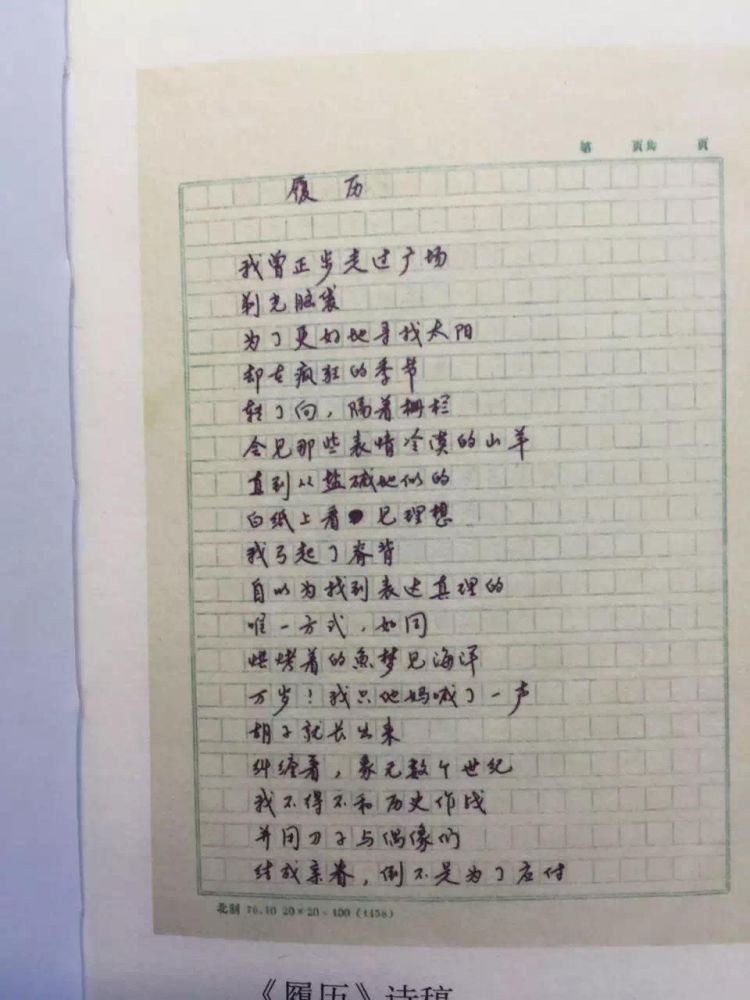 第 页共 页
履历
我曾正步走过广场
剃光脑袋
为了更好地寻找太阳
却在疯狂的季节
转了向，隔着栅栏
会见那些表情冷漠的山羊
直到从盐碱地似的
白纸上看见理想
我弓起了脊背
自以为找到表达真理的
唯一方式，如同
烘烤着的鱼梦见海洋
万岁！我只他妈喊了一声
胡子就长出来
纠缠着，象无数个世纪
我不得不和历史作战
并用刀子与偶像们
结成亲眷，倒不是为了应付
北制 76.10 20×20=400 (1458)
《履历》诗稿